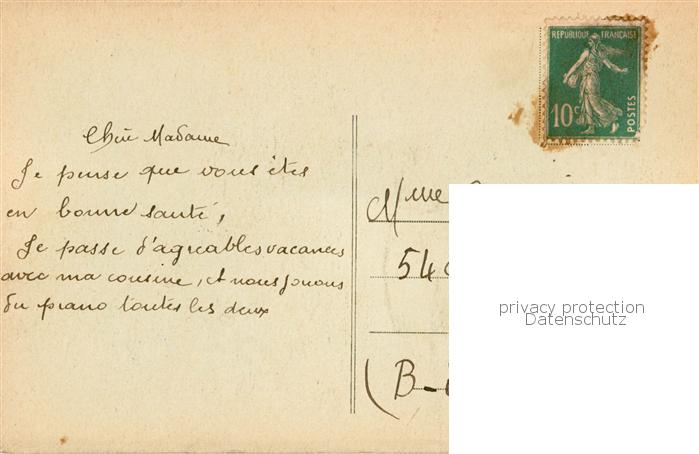 Chère Madame
Je pense que vous êtes
en bonne santé,
Je passe d'agréables vacances
avec ma cousine, et nous jouons
du piano toutes les deux
REPUBLIQUE FRANÇAISE
10c
POSTES
Mme
54
(B-
privacy protection
Datenschutz